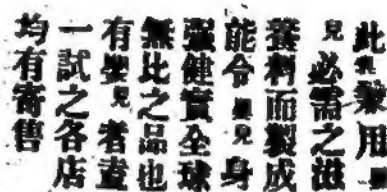 此乳用
兒必需之滋
養料而製成
能令嬰兒身
强健實全球
無比之品也
有嬰兒者盍
一試之各店
均有寄售